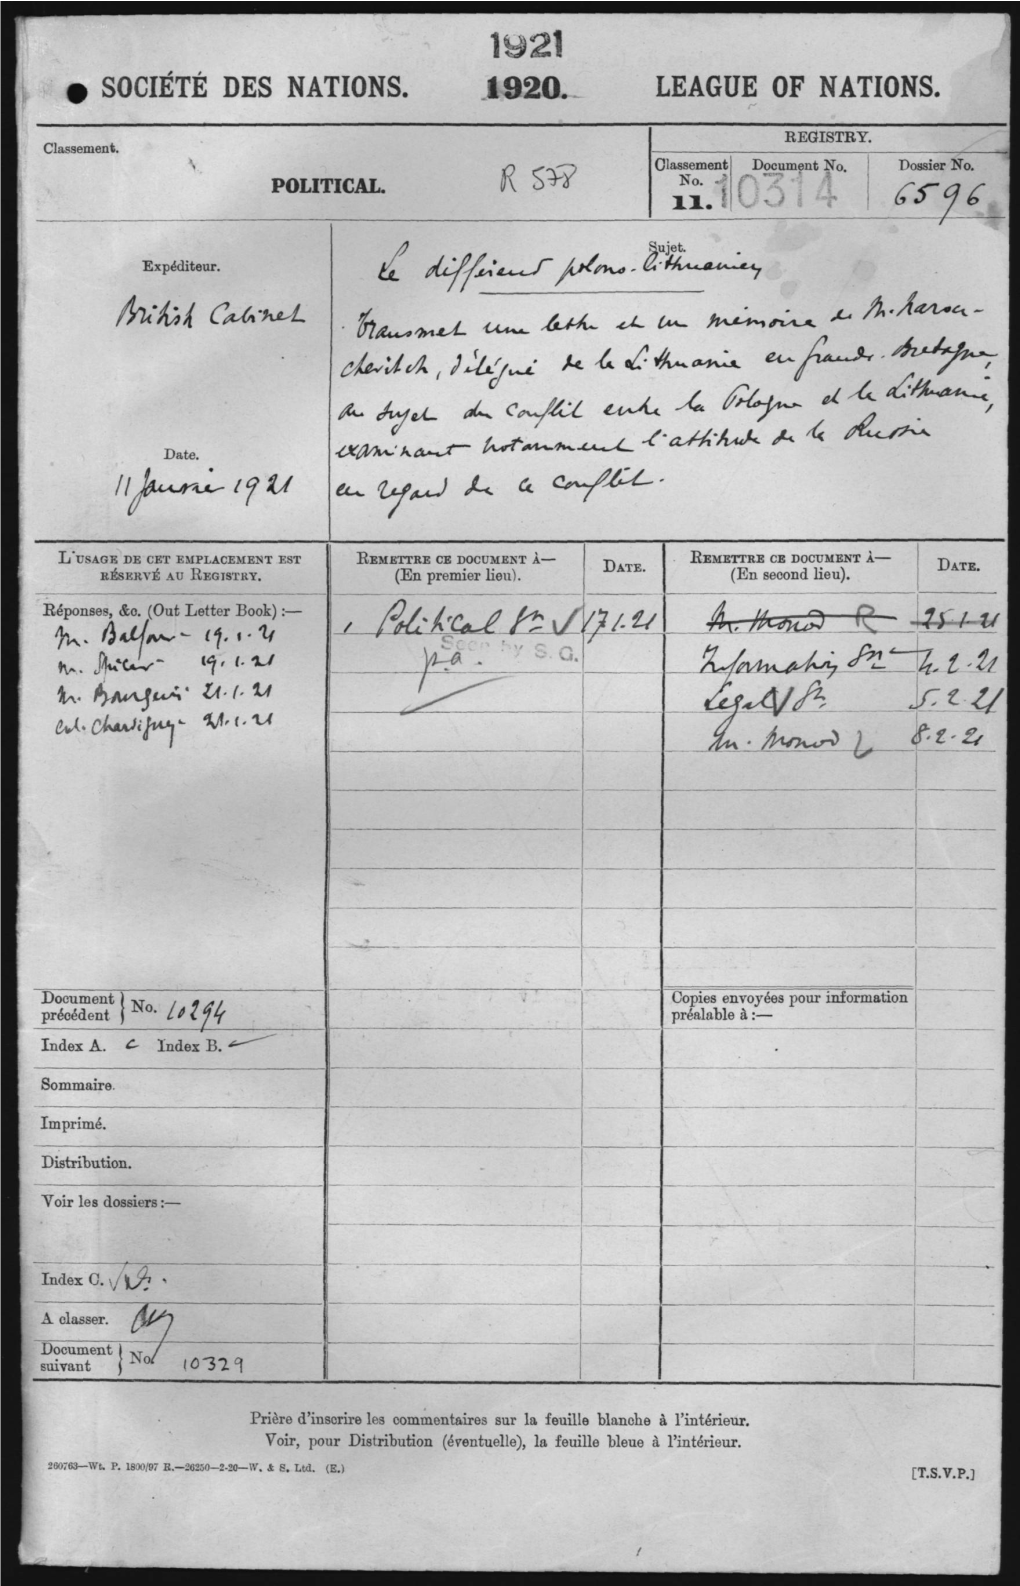 1921
SOCIÉTÉ DES NATIONS. 1920. LEAGUE OF NATIONS.
Classement.
POLITICAL.
R 578
REGISTRY.
Classement No. 11.
Document No. 10314
Dossier No. 6596
Expéditeur.
British Cabinet
Date.
11 Janvier 1921
Sujet.
Le différend polono-lithuanien
Transmet une lettre et un mémoire de M. Narou-
chevitch, délégué de la Lithuanie en Grande-Bretagne,
au sujet du conflit entre la Pologne et la Lithuanie,
examinant notamment l'attitude de la Russie
en regard de ce conflit.
L'USAGE DE CET EMPLACEMENT EST
RÉSERVÉ AU REGISTRY.
Réponses, &c. (Out Letter Book) :—
M. Balfour 19.1.21
M. Spicer 19.1.21
M. Bourgeois 21.1.21
Col. Chardigny 21.1.21
REMETTRE CE DOCUMENT À—
(En premier lieu).
DATE.
Political Sn 17.1.21
Seen by S. G.
p.a.
REMETTRE CE DOCUMENT À—
(En second lieu).
DATE.
M. Monod R 25.1.21
Information Sn 4.2.21
Legal Sn 5.2.21
M. Monod 8.2.21
Document
précédent } No. 10294
Index A. Index B.
Sommaire.
Imprimé.
Distribution.
Voir les dossiers :—
Index C.
A classer.
Document
suivant } No. 10329
Copies envoyées pour information
préalable à :—
Prière d'inscrire les commentaires sur la feuille blanche à l'intérieur.
Voir, pour Distribution (éventuelle), la feuille bleue à l'intérieur.
260763—Wt. P. 1800/97 R.—26250—2-20—W. & S. Ltd. (E.)
[T.S.V.P.]